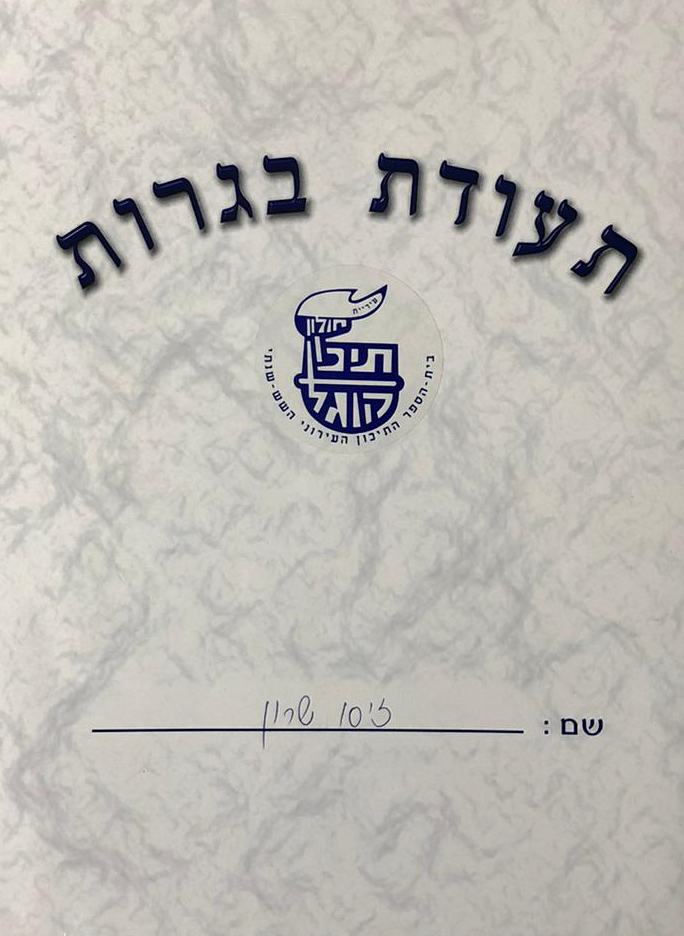 תעודת בגרות
עיריית
חולון
תיכון
קוגל
בית-הספר התיכון העירוני השש-שנתי
שם : זיסו שרון